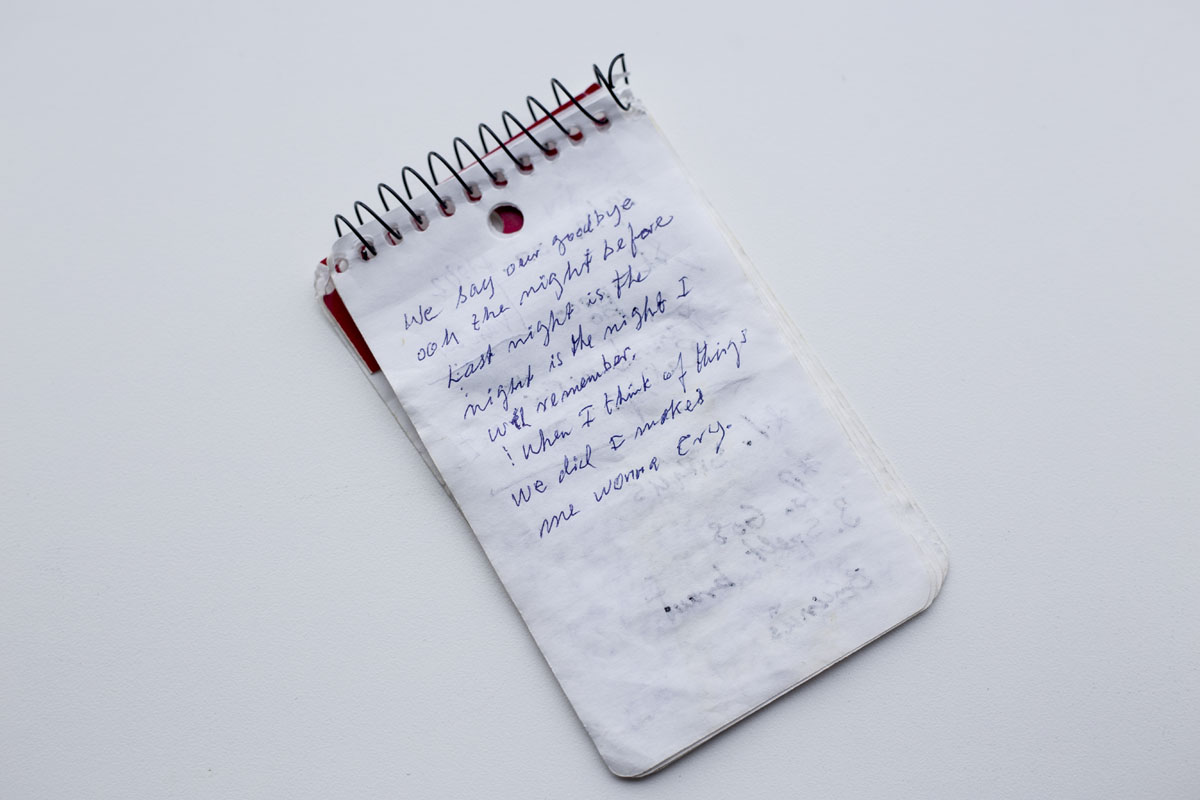 We say our goodbye
ooh the night before
Last night is the
night is the night I
will remember.
! When I think of things
we did I makes
me wonna cry.